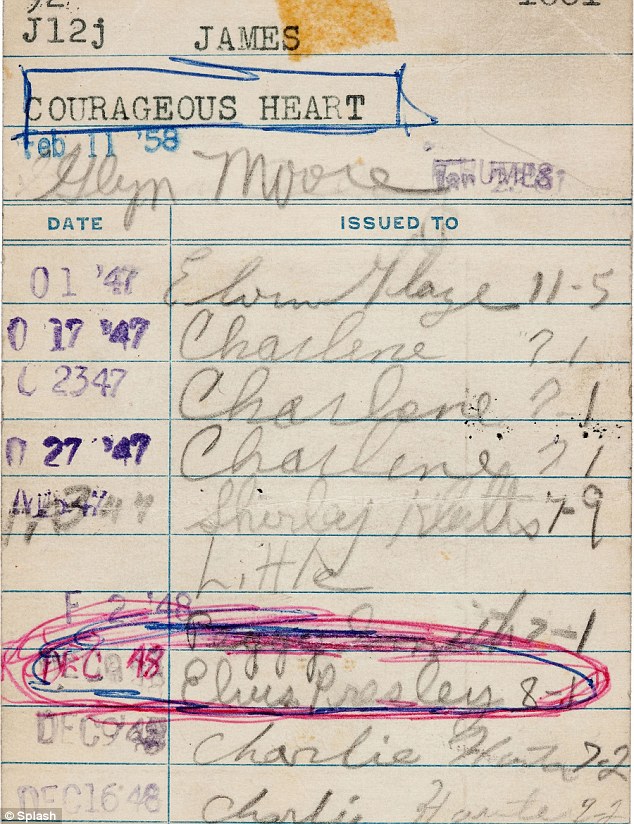 J12j JAMES
COURAGEOUS HEART
Feb 11 '58
Glyn Moore
DATE ISSUED TO
O 1 '47 Elvin Glaze 11-5
O 17 '47 Charlene 7-1
2347 Charlene 7-1
O 27 '47 Charlene 7-1
Shirley 7-9
Little
F 2 '48 Peggy 7-1
DEC '48 Elvis Presley 8-1
DEC 9 '48 Charlie 7-2
DEC 16 '48 Charlie 7-2
© Splash